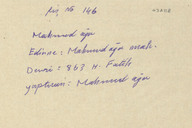 No 146
Mahmud ağa
Edirne: Mahmud ağa mah.
Devri: 863 H. Fatih
yaptıran: Mahmud ağa